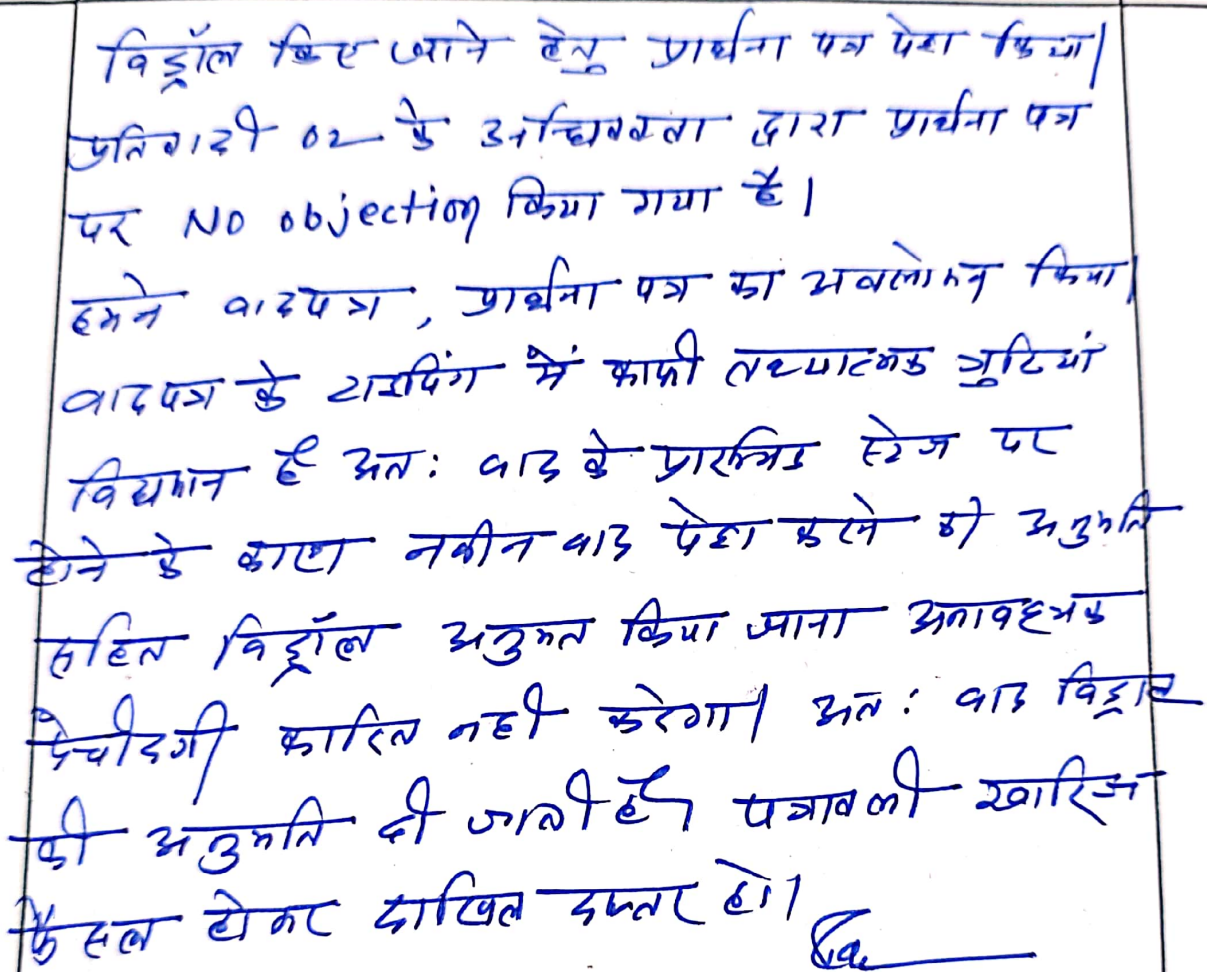 विड्रॉल किए जाने हेतु प्रार्थना पत्र पेश किया।
प्रतिवादी 02 के अधिवक्ता द्वारा प्रार्थना पत्र
पर No objection किया गया है।
हमने वादपत्र, प्रार्थना पत्र का अवलोकन किया।
वादपत्र के टाइपिंग में काफी तथ्यात्मक त्रुटियां
विद्यमान है अत: वाद के प्रारम्भिक स्टेज पर
होने के कारण नवीन वाद पेश करने की अनुमति
सहित विड्रॉल अनुमत किया जाना अनावश्यक
पेचीदगी कारित नही करेगा। अत: वाद विड्राल
की अनुमति दी जाती है। पत्रावली खारिज
फैसल होकर दाखिल दफ्तर हो।